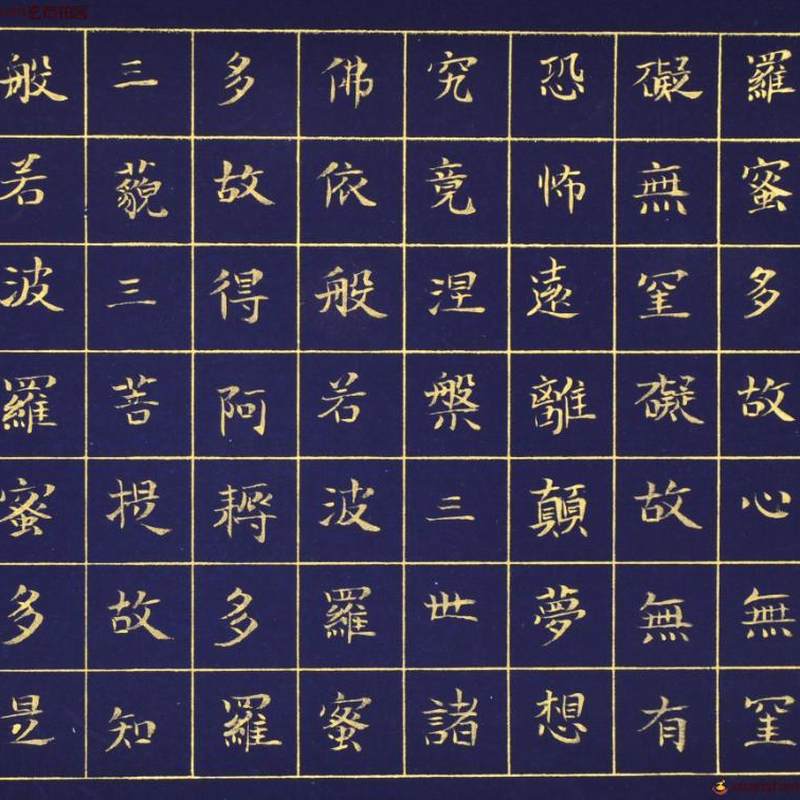 羅蜜多故心無罣
礙無罣礙故無有
恐怖遠離顛夢想
究竟涅槃三世諸
佛依般若波羅蜜
多故得阿耨多羅
三藐三菩提故知
般若波羅蜜多是